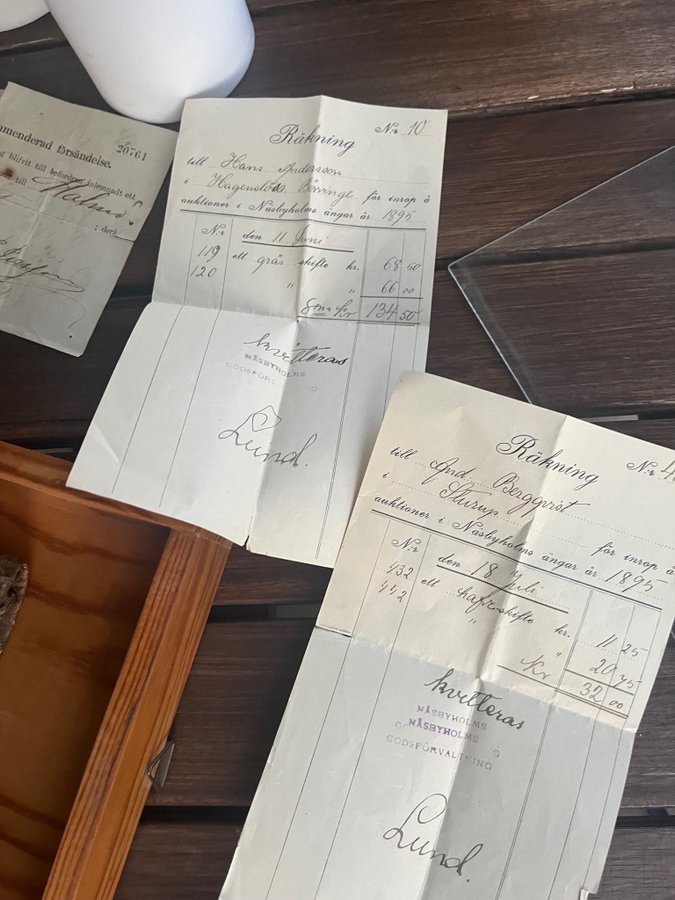 menderad försändelse.
20761
blifvit till befordran inlemnadt ett
till Malmö
: derå
Räkning
N:r 10
till Hans Andersson
i Bäringe för inrop å
auktioner i Näsbyholms ängar år 1895
N:r den 11 Juni
119 ett gräs skifte kr. 68 50
120 " " 66 00
Kr 134 50
kvitteras
NÄSBYHOLMS
GODSFÖR G
Lund.
Räkning
N:r 4
till And. Bergqvist
i Sturup för inrop å
auktioner i Näsbyholms ängar år 1895
N:r den 18 Juli
432 ett hafreskifte kr. 11 25
442 " " 20 75
Kr 32 00
kvitteras
NÄSBYHOLMS
NÄSBYHOLMS
G
GODSFÖRVALTNING
Lund.